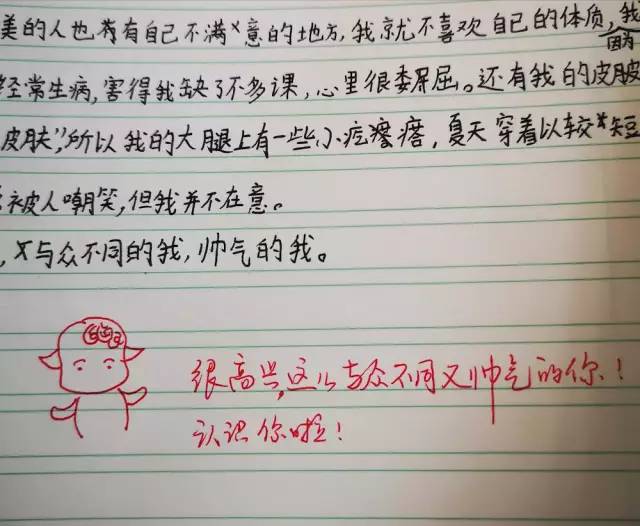 美的人也有自己不满意的地方,我就不喜欢自己的体质,我
因为
经常生病,害得我缺了不多课,心里很委屈。还有我的皮肤
皮肤",所以我的大腿上有一些小疙瘩,夏天穿着比较短
被人嘲笑,但我并不在意。
,与众不同的我,帅气的我。
很高兴,这么与众不同又帅气的你!
认识你啦!